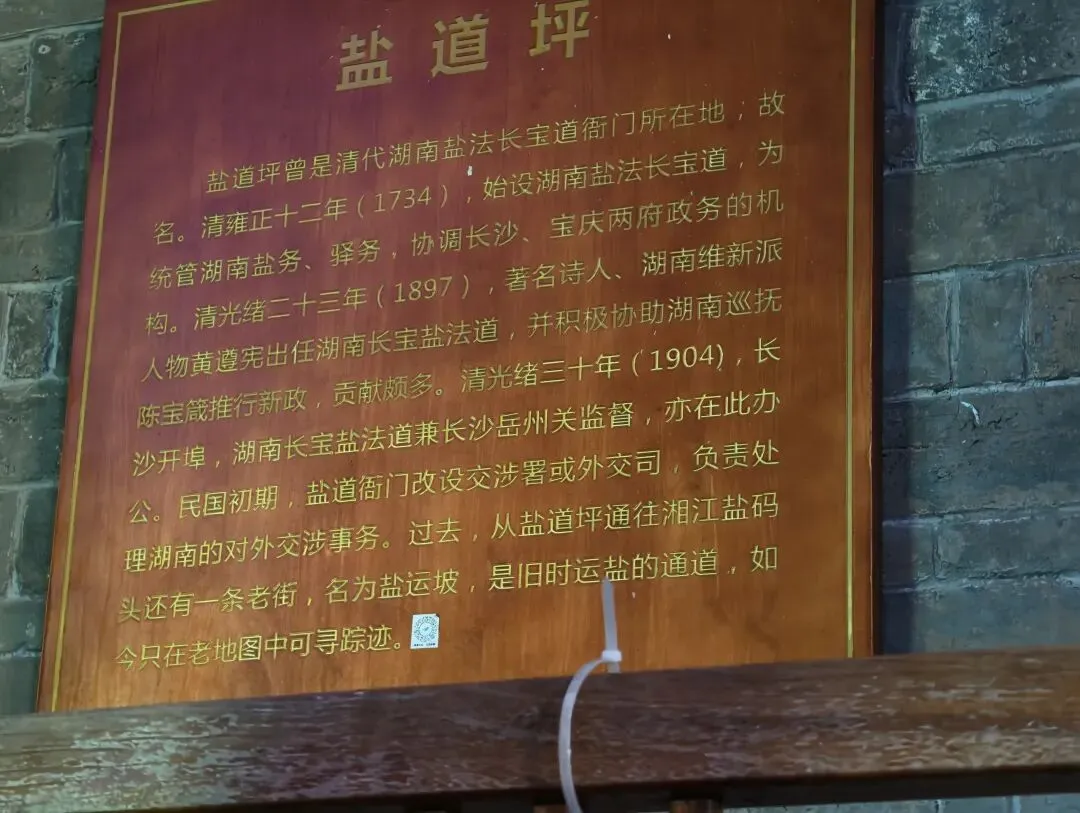 盐道坪
盐道坪曾是清代湖南盐法长宝道衙门所在地，故
名。清雍正十二年（1734），始设湖南盐法长宝道，为
统管湖南盐务、驿务，协调长沙、宝庆两府政务的机
构。清光绪二十三年（1897），著名诗人、湖南维新派
人物黄遵宪出任湖南长宝盐法道，并积极协助湖南巡抚
陈宝箴推行新政，贡献颇多。清光绪三十年（1904），长
沙开埠，湖南长宝盐法道兼长沙岳州关监督，亦在此办
公。民国初期，盐道衙门改设交涉署或外交司，负责处
理湖南的对外交涉事务。过去，从盐道坪通往湘江盐码
头还有一条老街，名为盐运坡，是旧时运盐的通道，如
今只在老地图中可寻踪迹。